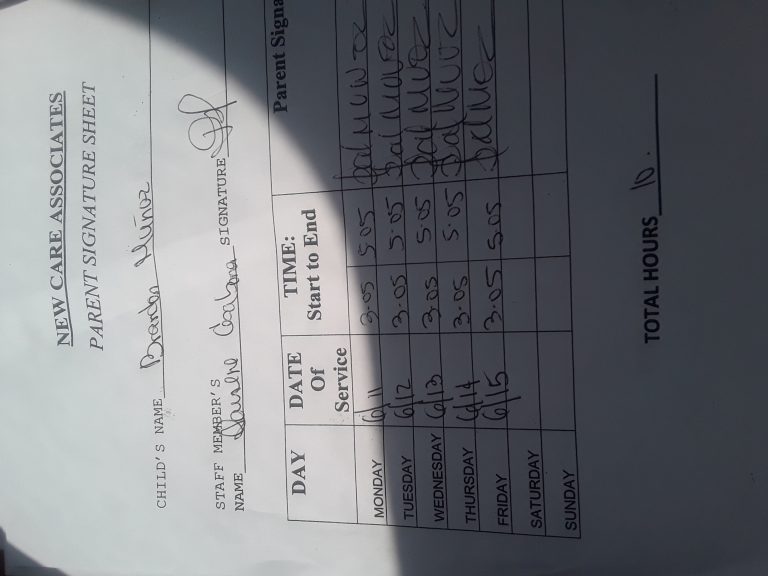 NEW CARE ASSOCIATES
PARENT SIGNATURE SHEET
CHILD'S NAME Brandon Muñoz
STAFF MEMBER'S
NAME SIGNATURE
DAY DATE Of Service TIME: Start to End Parent Signa
MONDAY 6/11 3.05 5.05
TUESDAY 6/12 3.05 5.05
WEDNESDAY 6/13 3.05 5.05
THURSDAY 6/14 3.05 5.05
FRIDAY 6/15 3.05 5.05
SATURDAY
SUNDAY
TOTAL HOURS 10.